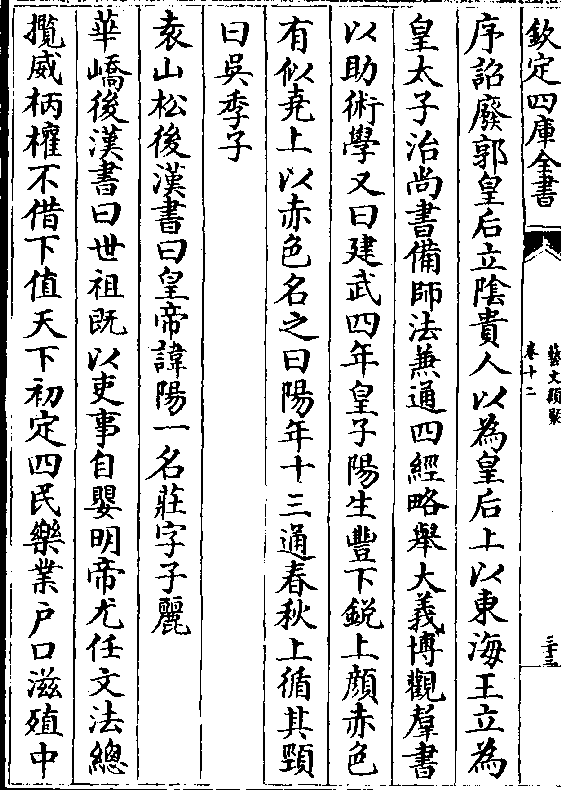 欽定四庫全書
藝文類聚
卷十二
三十三
序詔廢郭皇后立陰貴人以為皇后上以東海王立為
皇太子治尚書備師法兼通四經略舉大義博觀羣書
以助術學又曰建武四年皇子陽生豐下銳上顏赤色
有似堯上以赤色名之曰陽年十三通春秋上循其頸
曰吳季子
袁山松後漢書曰皇帝諱陽一名莊字子麗
華嶠後漢書曰世祖既以吏事自嬰明帝尤任文法總
攬威柄權不借下值天下初定四民樂業户口滋殖中